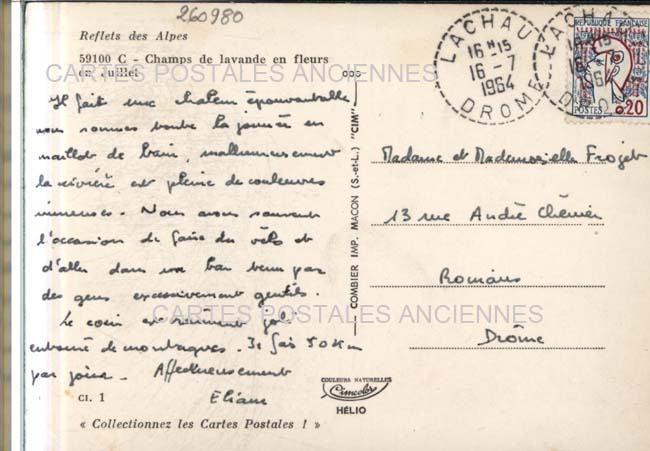 260980
Reflets des Alpes
59100 C - Champs de lavande en fleurs
en Juillet
Il fait une chaleur épouvantable
nous sommes toute la journée en
maillot de bain, malheureusement
la rivière est pleine de couleuvres
immenses. Nous avons souvent
l'occasion de faire du vélo et
d'aller dans un bar tenu par
des gens excessivement gentils.
Le coin est vraiment joli
entouré de montagnes. Je fais 50 Km
par jour. Affectueusement
Eliane
CI. 1
« Collectionnez les Cartes Postales ! »
COMBIER IMP. MACON (S.-et-L.) "CIM"
COULEURS NATURELLES
Cimcolor
HÉLIO
LACHAU
16 H 15
16 - 7
1964
DROME
LACHAU
REPUBLIQUE FRANÇAISE
POSTES
0,20
Madame et Mademoiselle Froget
13 rue André Chénier
Romans
Drôme
CARTES POSTALES ANCIENNES
CARTES POSTALES ANCIENNES